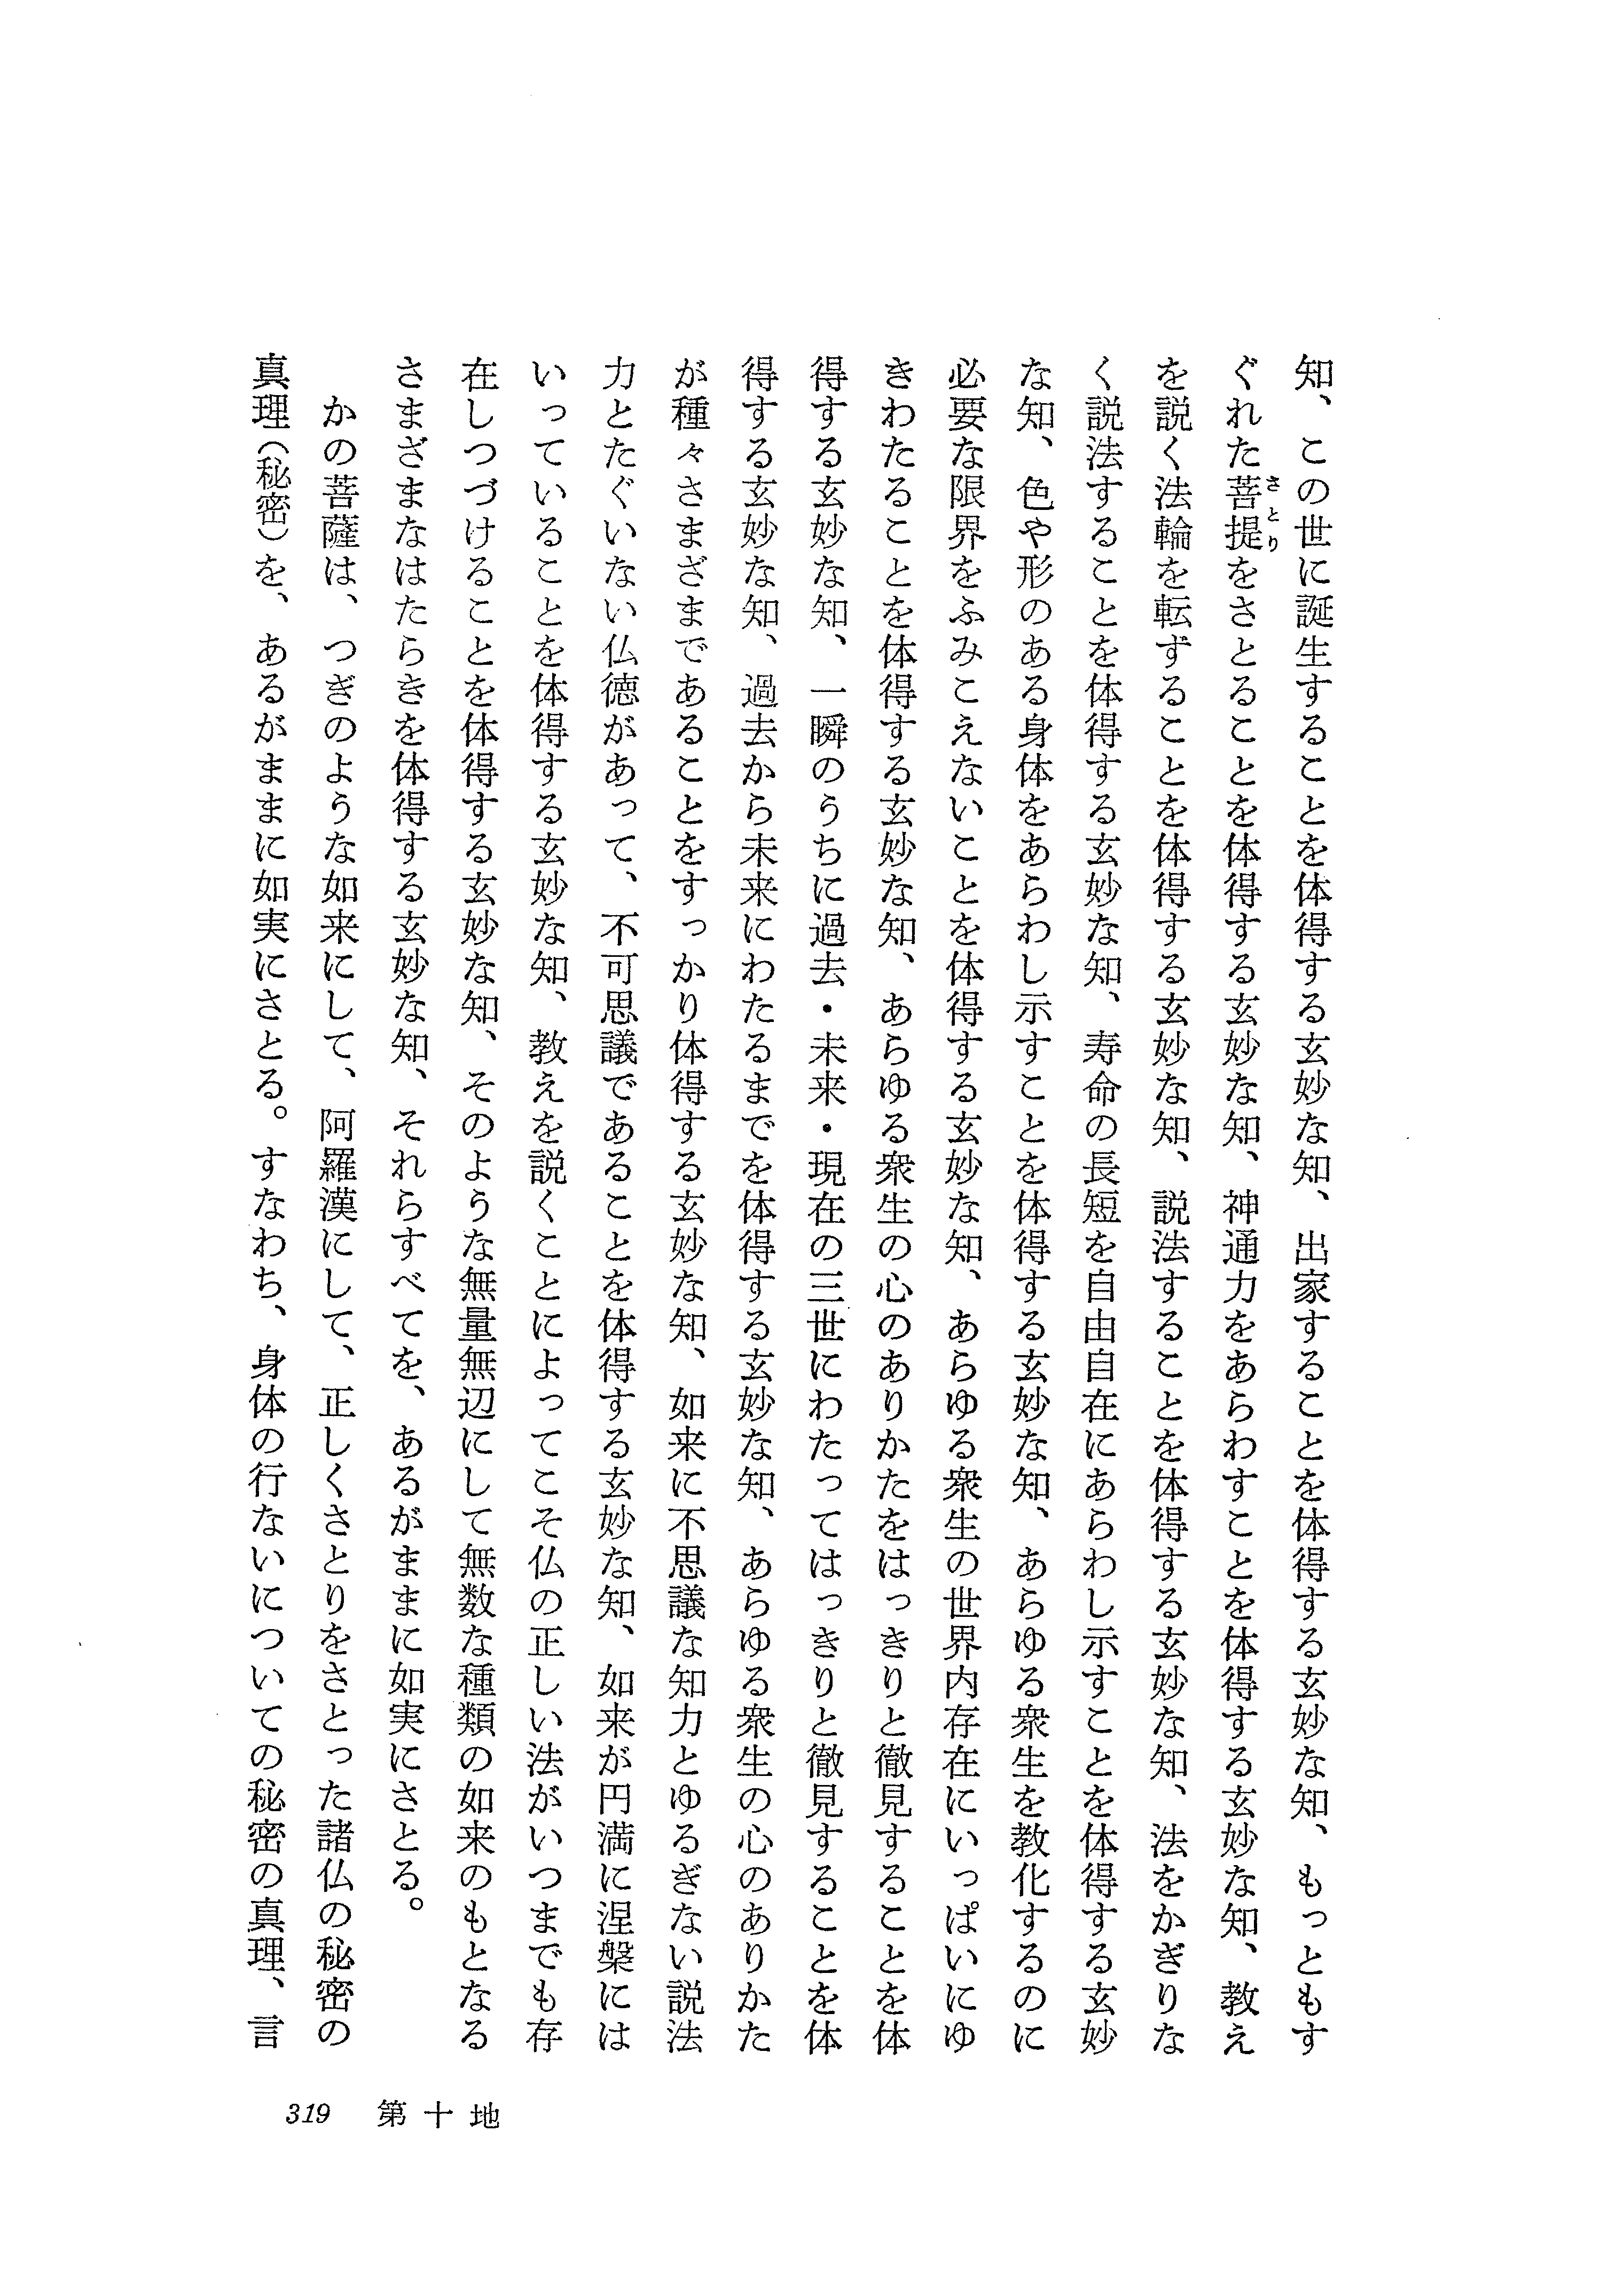 知、この世に誕生することを体得する玄妙な知、出家することを体得する玄妙な知、もっともす
ぐれた菩提をさとることを体得する玄妙な知、神通力をあらわすことを体得する玄妙な知、教え
さとり
を説く法輪を転ずることを体得する玄妙な知、説法することを体得する玄妙な知、法をかぎりな
く説法することを体得する玄妙な知、寿命の長短を自由自在にあらわし示すことを体得する玄妙
な知、色や形のある身体をあらわし示すことを体得する玄妙な知、あらゆる衆生を教化するのに
必要な限界をふみこえないことを体得する玄妙な知、あらゆる衆生の世界内存在にいっぱいにゆ
きわたることを体得する玄妙な知、あらゆる衆生の心のありかたをはっきりと徹見することを体
得する玄妙な知、一瞬のうちに過去・未来・現在の三世にわたってはっきりと徹見することを体
得する玄妙な知、過去から未来にわたるまでを体得する玄妙な知、あらゆる衆生の心のありかた
が種々さまざまであることをすっかり体得する玄妙な知、如来に不思議な知力とゆるぎない説法
力とたぐいない仏徳があって、不可思議であることを体得する玄妙な知、如来が円満に涅槃には
いっていることを体得する玄妙な知、教えを説くことによってこそ仏の正しい法がいつまでも存
在しつづけることを体得する玄妙な知、そのような無量無辺にして無数な種類の如来のもとなる
さまざまなはたらきを体得する玄妙な知、それらすべてを、あるがままに如実にさとる。
かの菩薩は、つぎのような如来にして、阿羅漢にして、正しくさとりをさとった諸仏の秘密の
真理（秘密）を、あるがままに如実にさとる。すなわち、身体の行ないについての秘密の真理、言
319 第十地